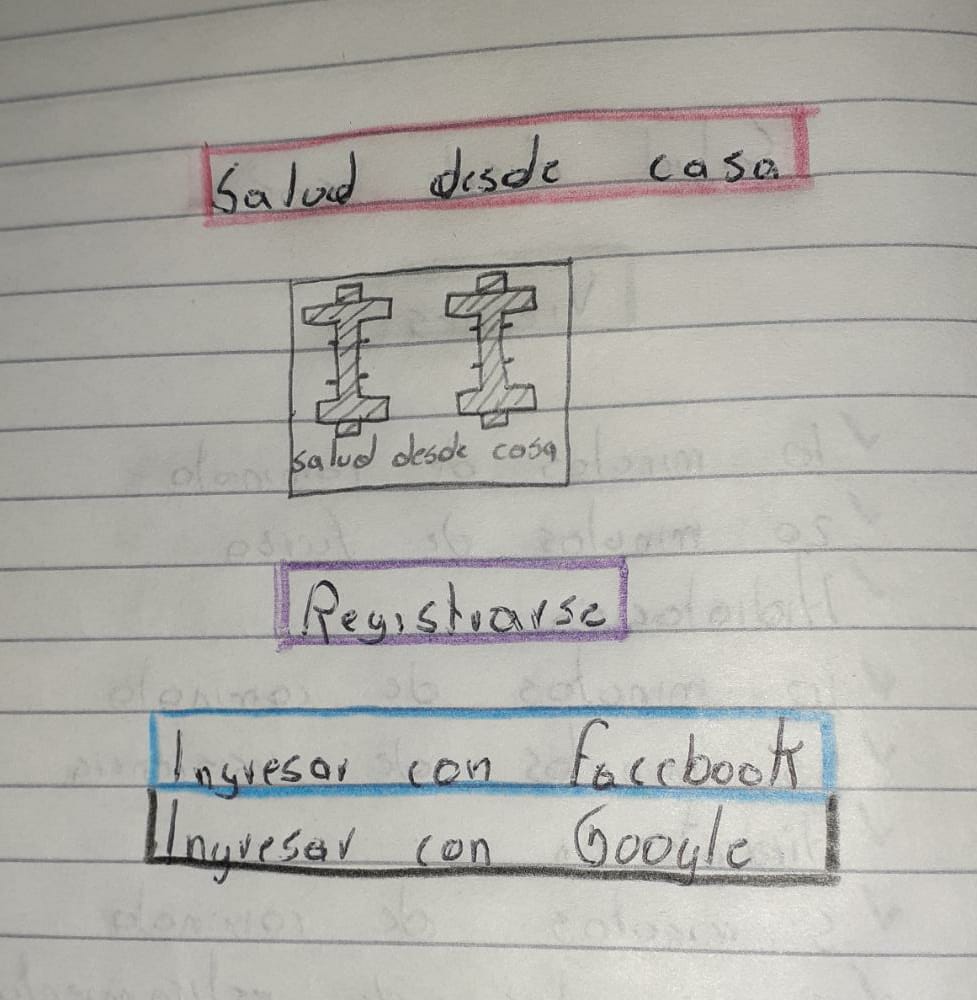 Salud desde casa
salud desde casa
Registrarse
Ingresar con facebook
Ingresar con Google